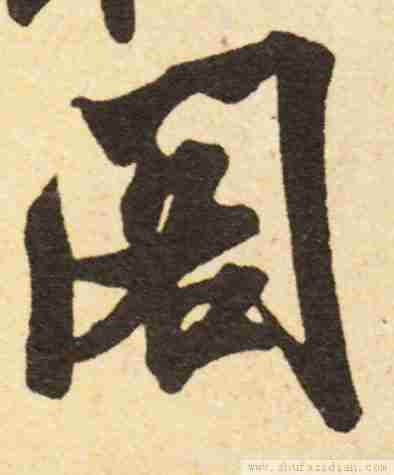 阁
www.shufazidian.com